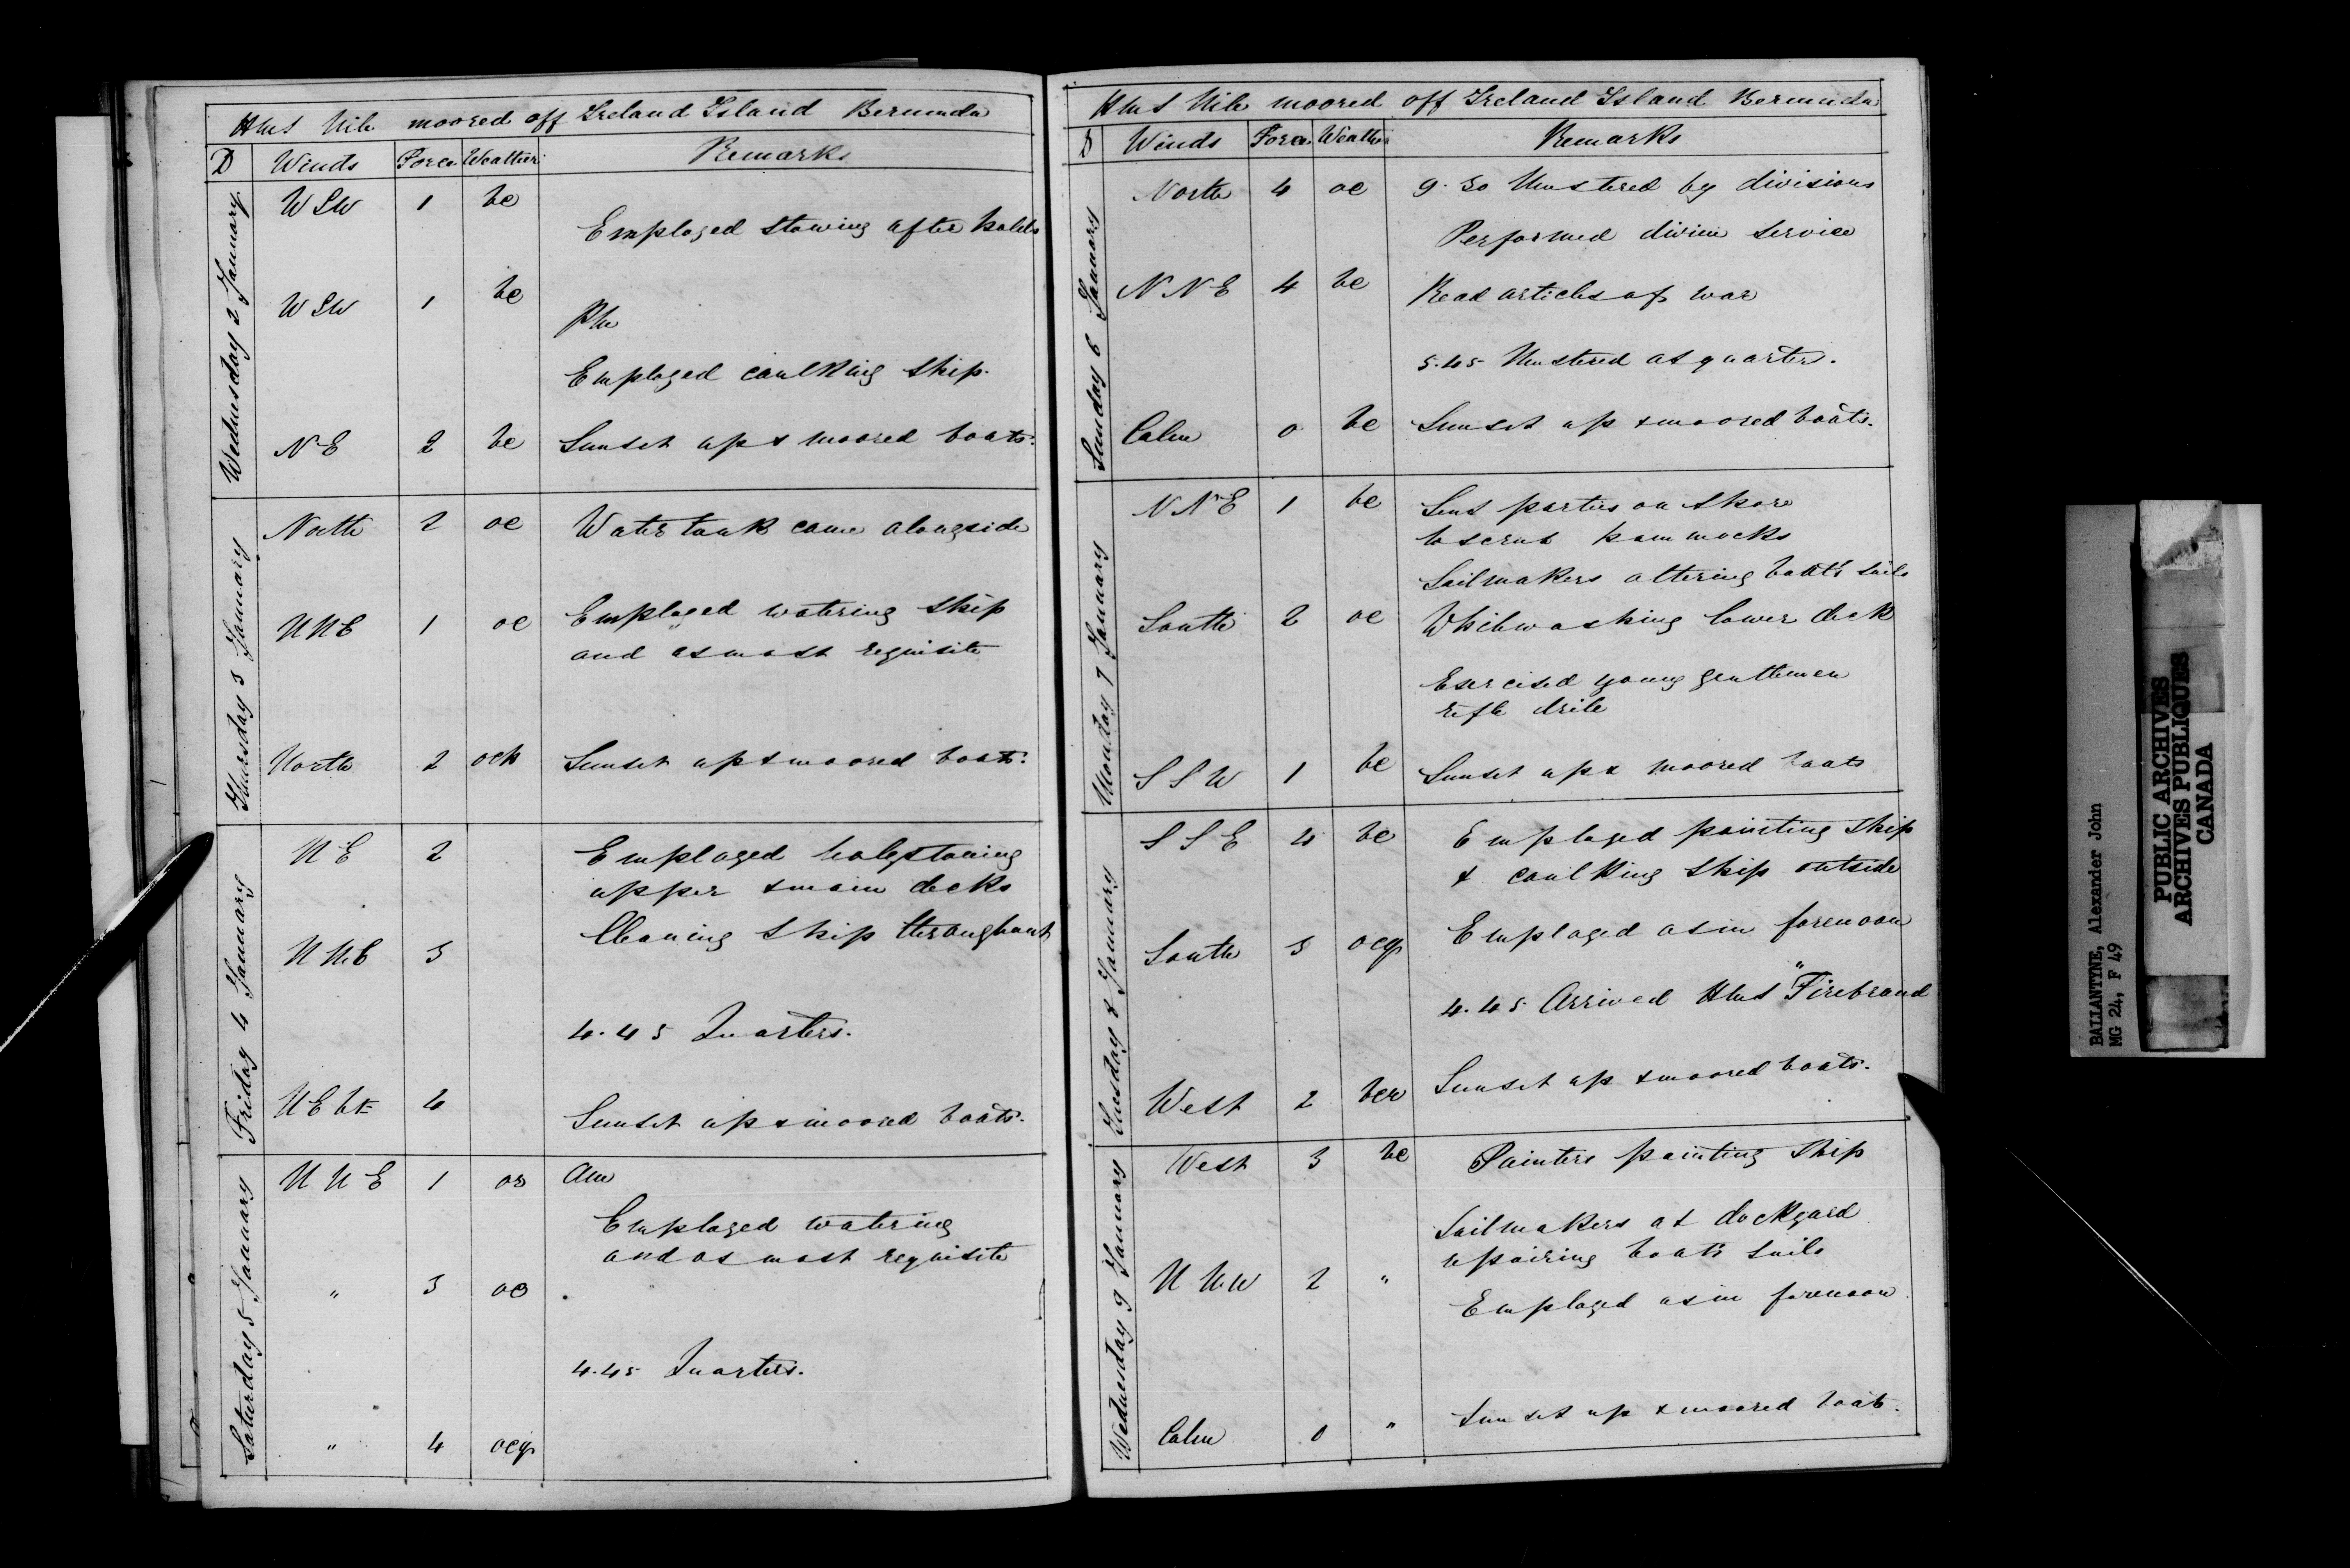 HMS Nile moored off Ireland Island Bermuda
D Winds Force Weather Remarks
Wednesday 2 January
WSW 1 bc
Employed stowing after holds
WSW 1 bc
PM
Employed caulking ship.
NE 2 bc Sunset up & moored boats.
Thursday 3 January
North 2 oc Water tank came alongside
NNE 1 oc Employed watering ship
and as most requisite
North 2 Sunset up & moored boats.
Friday 4 January
NE 2 Employed holystoning
upper & main decks
NNE 3 Cleaning ship throughout
4.45 Quarters.
NE 4
Sunset up & moored boats.
Saturday 5 January
NNE 1 or AM
Employed watering
and as most requisite
" 3 oc
4.45 Quarters.
" 4 ocq
HMS Nile moored off Ireland Island Bermuda
D Winds Force Weather Remarks
Sunday 6 January
North 4 oc 9.30 Mustered by divisions
Performed divine service
NNE 4 bc Read articles of war
5.45 Mustered at quarters.
Calm 0 bc Sunset up & moored boats.
Monday 7 January
NNE 1 bc Sent parties on shore
to scrub hammocks
Sailmakers altering boats sails
South 2 oc Whitewashing lower deck
Exercised young gentlemen
rifle drile
SSW 1 bc Sunset up & moored boats
Tuesday 8 January
SSE 4 bc Employed painting ship
& caulking ship outside
South 3 ocq Employed as in forenoon
4.45 Arrived HMS "Firebrand
West 2 bcr Sunset up & moored boats.
Wednesday 9 January
West 3 bc Painters painting ship
Sailmakers at dockyard
repairing boats sails
NNW 2 " Employed as in forenoon.
Calm 0 " Sunset up & moored boats.
BALLANTYNE, Alexander John
MG 24, F 49
PUBLIC ARCHIVES
ARCHIVES PUBLIQUES
CANADA